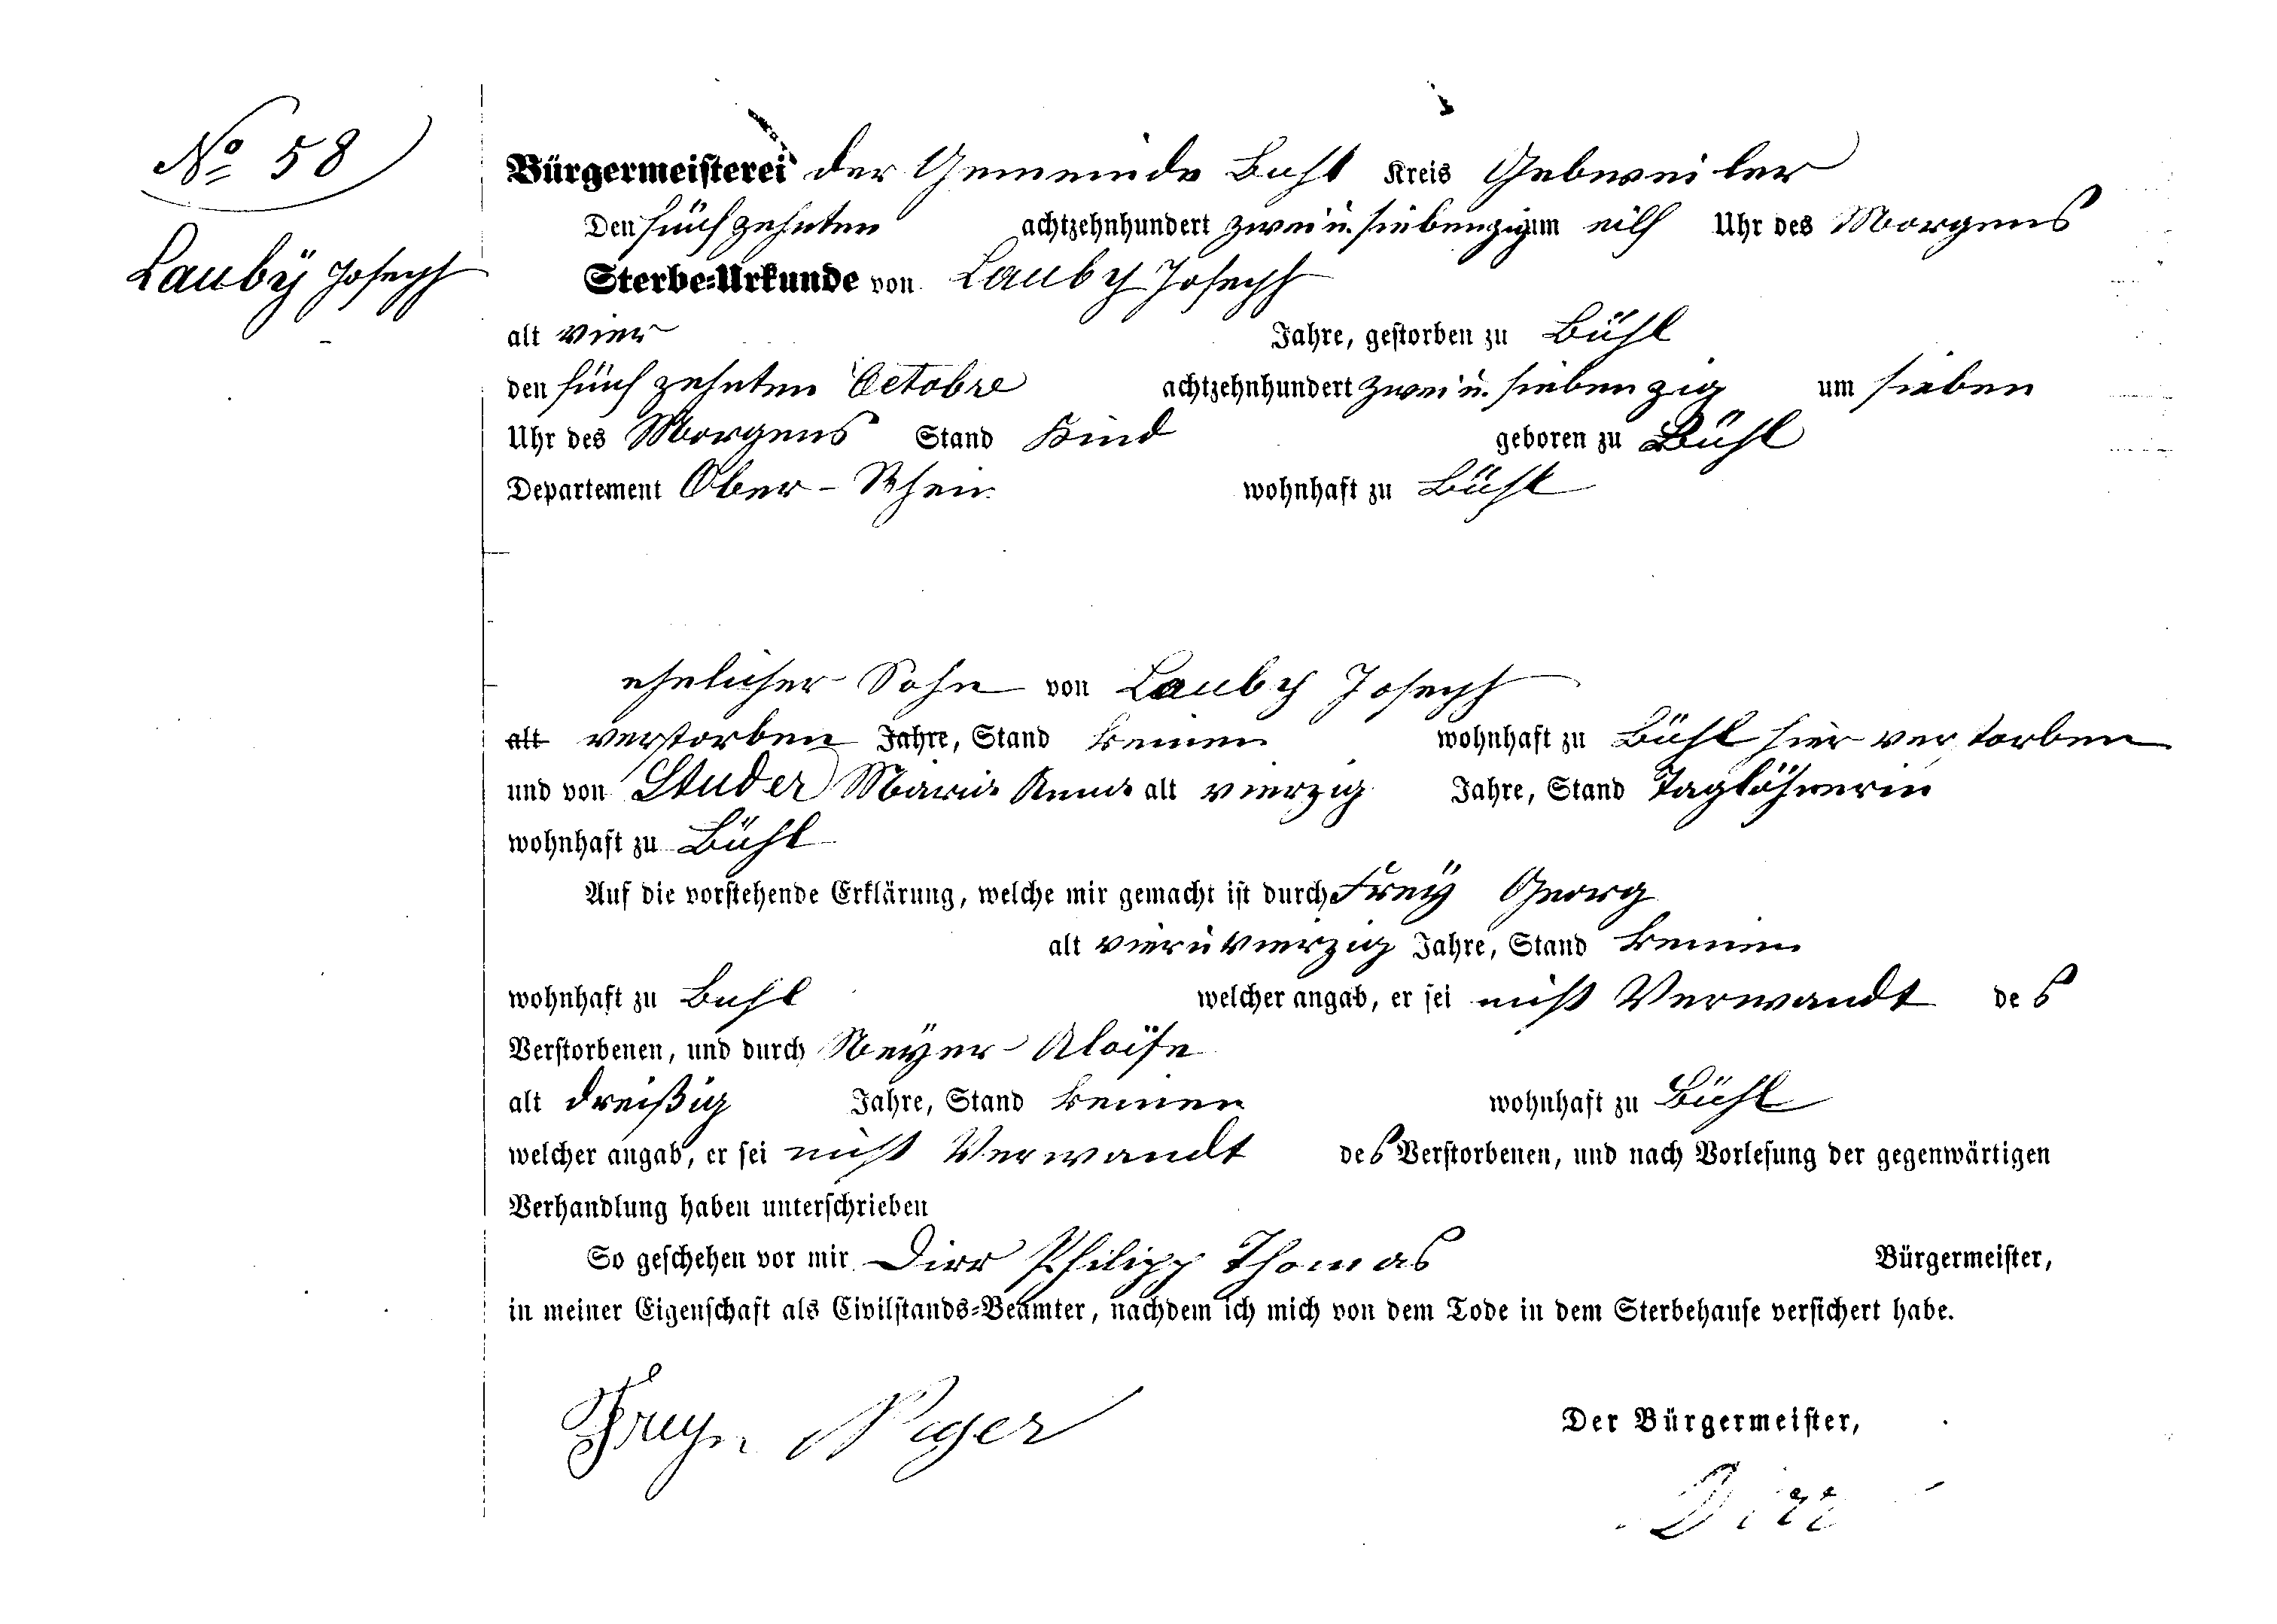 No 58
Lauby Joseph
Bürgermeisterei der Gemeinde Buhl Kreis Gebweiler
Den fünfzehnten achtzehnhundert zwei u. siebenzig um eilf Uhr des Morgens
Sterbe-Urkunde von Lauby Joseph
alt vier Jahre, gestorben zu Bühl
den fünfzehnten Octobre achtzehnhundert zwei u. siebenzig um sieben
Uhr des Morgens Stand Kind geboren zu Bühl
Departement Ober-Rhein wohnhaft zu Bühl
ehelicher Sohn von Lauby Joseph
alt verstorben Jahre, Stand keinen wohnhaft zu Bühl hier verstorben
und von Studer Maria Anna alt vierzig Jahre, Stand Taglöhnerin
wohnhaft zu Bühl
Auf die vorstehende Erklärung, welche mir gemacht ist durch Frey Georg
alt vier u vierzig Jahre, Stand keinen
wohnhaft zu Buhl welcher angab, er sei nicht Verwandt des
Verstorbenen, und durch Meyer Aloïse
alt dreißig Jahre, Stand keinen wohnhaft zu Bühl
welcher angab, er sei nicht Verwandt des Verstorbenen, und nach Vorlesung der gegenwärtigen
Verhandlung haben unterschrieben
So geschehen vor mir Dirr Philipp Thomas Bürgermeister,
in meiner Eigenschaft als Civilstands-Beamter, nachdem ich mich von dem Tode in dem Sterbehause versichert habe.
Frey Meyer
Der Bürgermeister,
Dirr